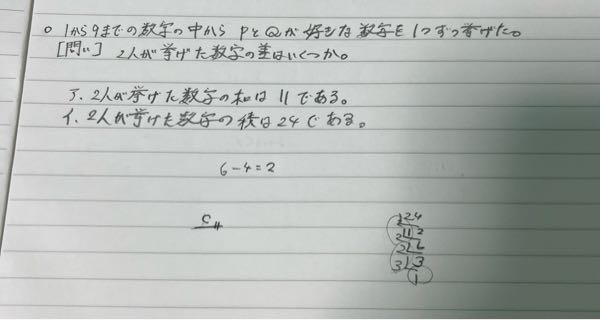 ○ 1から9までの数字の中からPとQが好きな数字を1つずつ挙げた。
[問い] 2人が挙げた数字の差はいくつか。
ア、2人が挙げた数字の和は11である。
イ、2人が挙げた数字の積は24である。
6-4=2
C